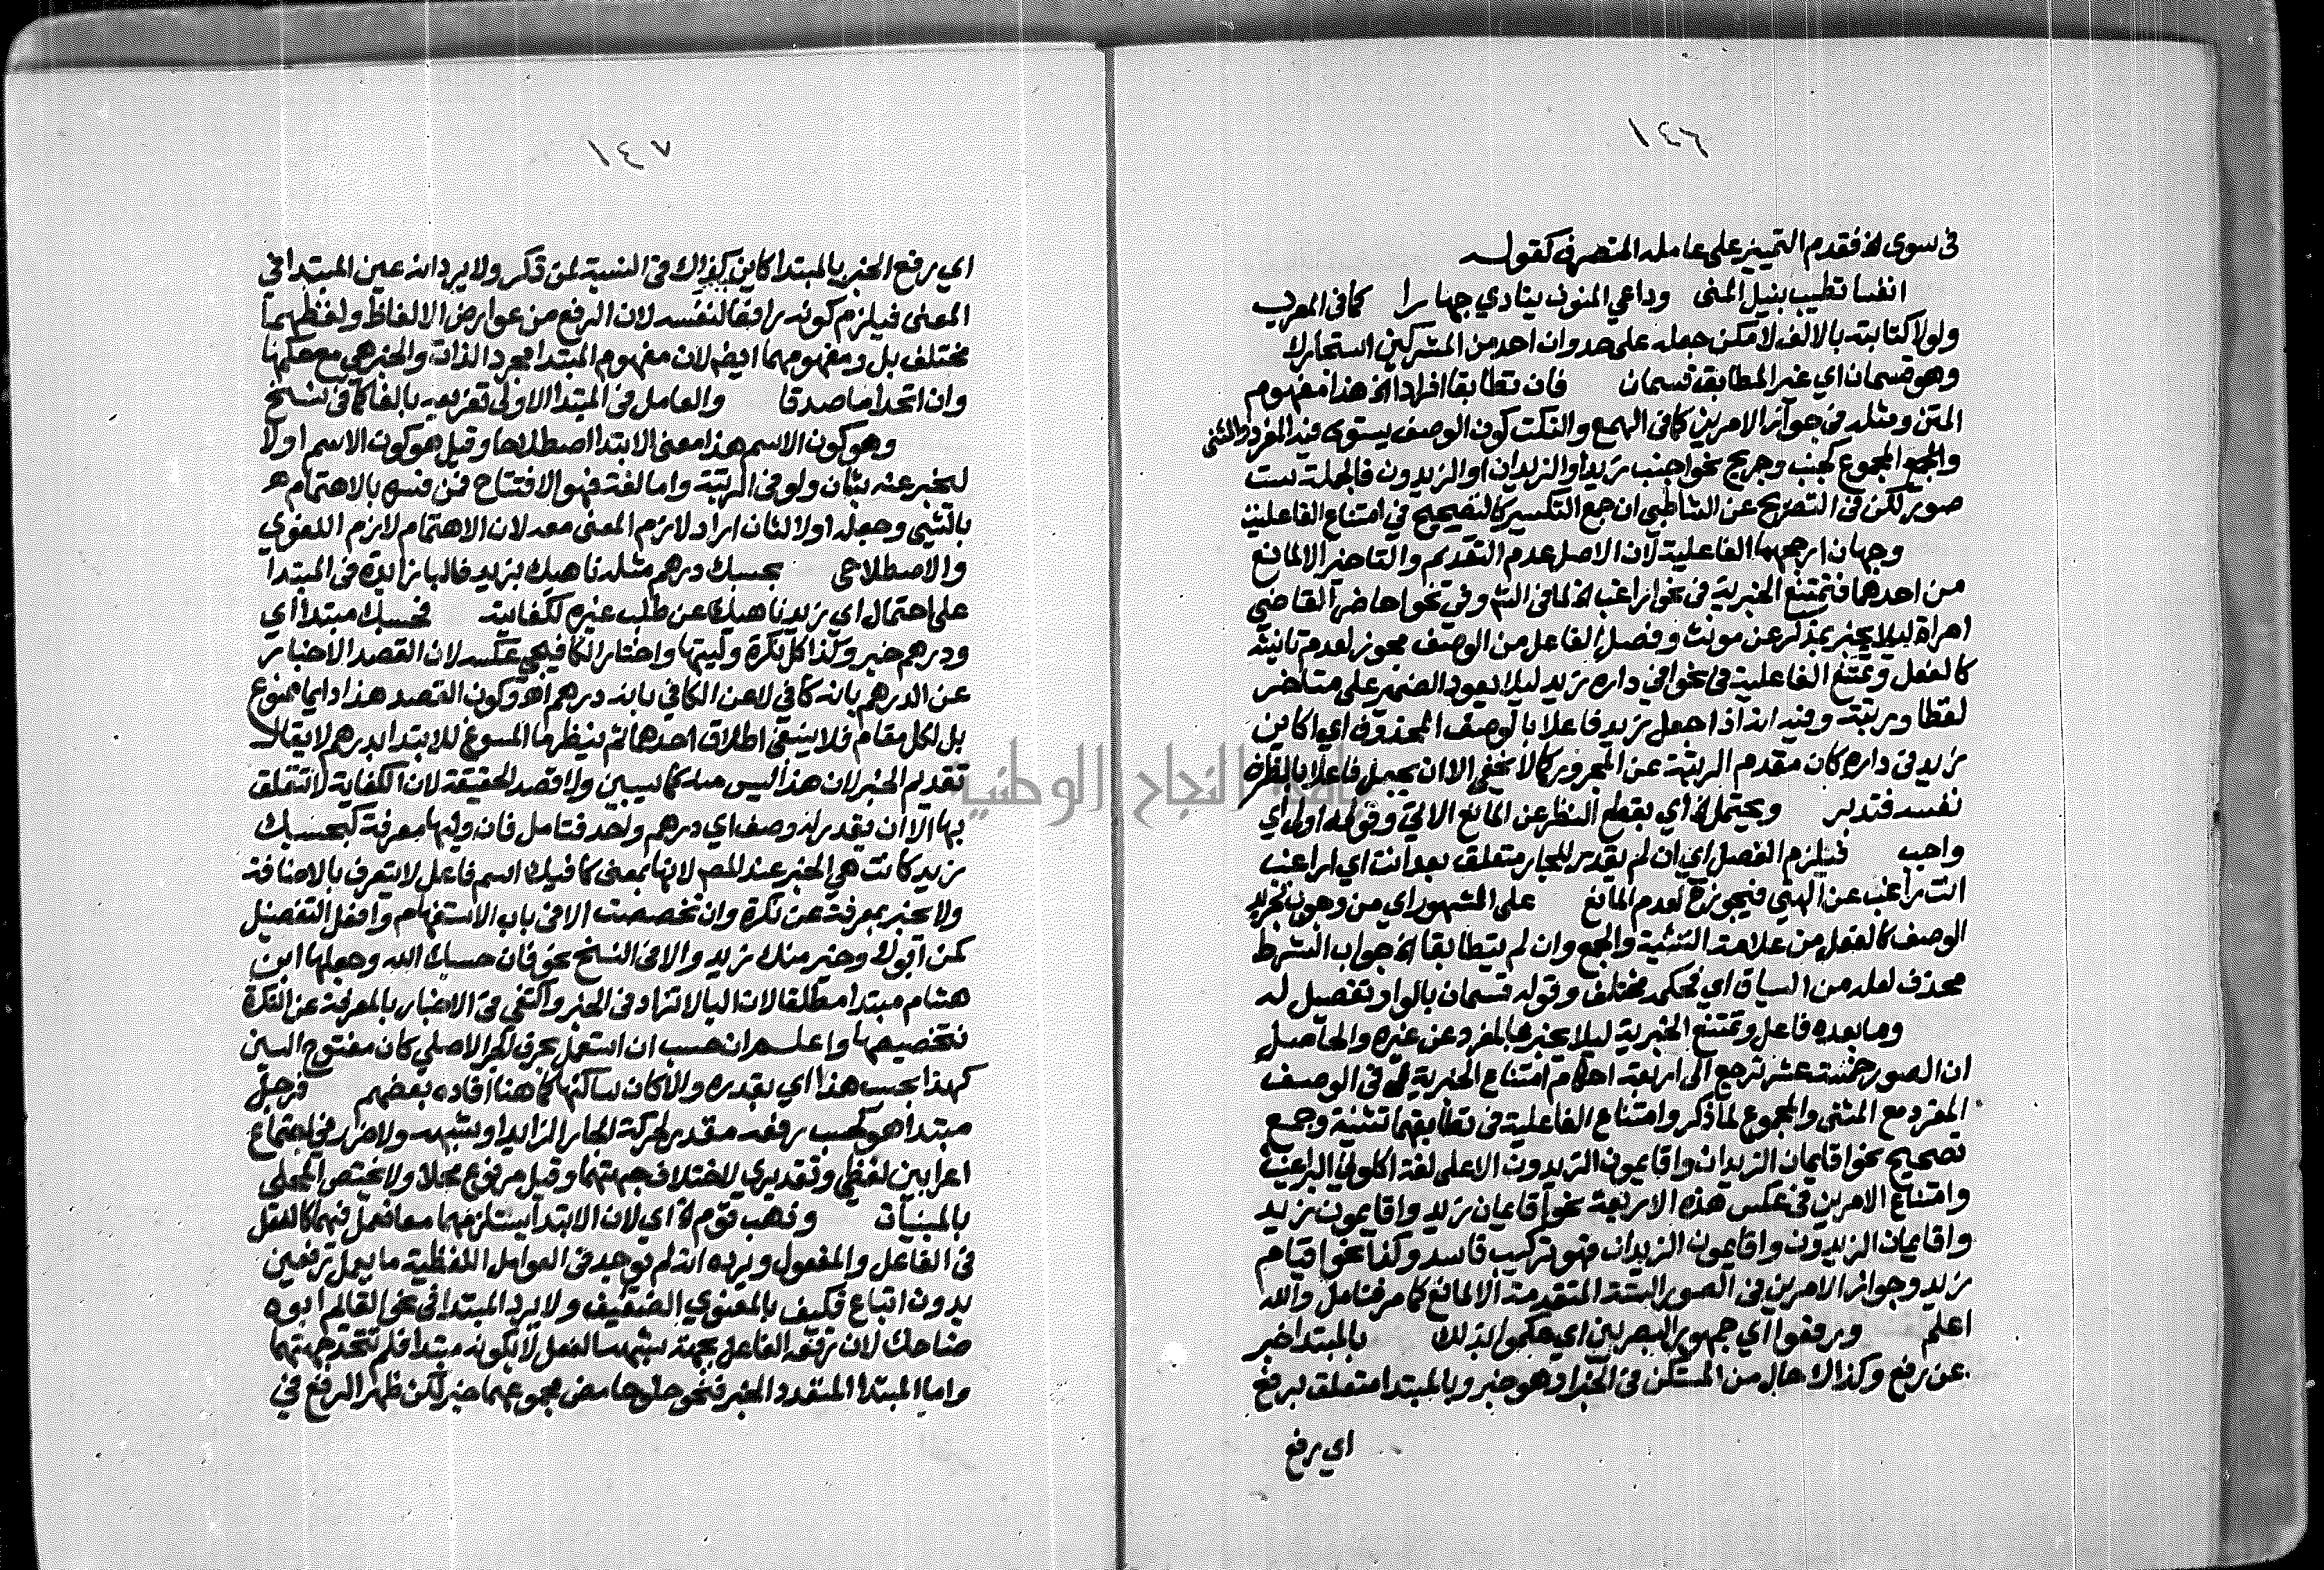 ١٤٦
في سوى اه فقدم التمييز على عامله المتصرف كقوله
انفسا تطيب بنيل المنى وداعي المنون ينادي جهارا كما في المعرب
ولولا كتابته بالالف لامكن جعله على حد وان احد من المشركين استجارك
وهو قسمان اي غير المطابقة قسمان فان تطابقا افرادا اه هذا مفهوم
المتن ومثله في جواز الامرين كما في الهمع والنكت كون الوصف يستوي فيه المفرد والمثنى
والجمع المجموع كجنب وجريح نحو اجنب زيد او الزيدان او الزيدون فالجملة ست
صور لكن في التصريح عن الشاطبي ان جمع التكسير كالتصحيح في امتناع الفاعلية
وجهان ارجحهما الفاعلية لان الاصل عدم التقديم والتاخير الا لمانع
من احدهما فتمتنع الخبرية في نحو اراغب اه لما في الشـ وفي نحو احاضر القاضي
امراة ليلا يخبر بمذكر عن مونث وفصل الفاعل من الوصف مجوز لعدم تانيثه
كالفعل وتمتنع الفاعلية في نحو افي داره زيد ليلا يعود الضمير على متاخر
لفظا ورتبة وفيه انه اذا جعل زيد فاعلا بالوصف المحذوف اي اكاين
زيد في داره كان مقدم الرتبة عن المجرور كما لا يخفى الا ان يجعل فاعلا بالظرف
نفسه فتدبر ويحتمل اه اي بقطع النظر عن المانع الاتي وقوله اولى اي
واجب فيلزم الفصل اي ان لم يقدر للجار متعلق بعد انت اي اراغب
انت راغب عن الهتي فيجوز اه لعدم المانع على المشهور اي من وجوب تجريد
الوصف كالفعل من علامة التثنية والجمع وان لم يتطابقا اه جواب الشرط
محذوف لعلمه من السياق اي فحكمه مختلف وقوله قسمان بالواو تفصيل له
وما بعده فاعل وتمتنع الخبرية ليلا يخبر بالمفرد عن غيره والحاصل
ان الصور خمسة عشر ترجع الى اربعة احكام امتناع الخبرية في الوصف
المفرد مع المثنى والمجموع لما ذكر وامتناع الفاعلية في تطابقهما تثنية وجمع
تصحيح نحو اقايمان الزيدان واقايمون الزيدون الا على لغة اكلوني البراغيث
وامتناع الامرين في عكس هذه الاربعة نحو اقايمان زيد واقايمون زيد
واقايمان الزيدون واقايمون الزيدان فهو تركيب فاسد وكذا نحو اقيام
زيد وجواز الامرين في الصور الستة المتقدمة الا لمانع كما مر فتامل والله
اعلم ورفعوا اي جمهور البصريين اي حكموا بذلك بالمبتدا خبر
عن رفع وكذا لا حال من المستكن في الخبر اذ هو خبر وبالمبتدا متعلق برفع
اي رفع
١٤٧
اي رفع الخبر بالمبتدا كاين كذاك في النسبة لمن ذكر ولا يرد انه عين المبتدا في
المعنى فيلزم كونه رافعا لنفسه لان الرفع من عوارض الالفاظ ولفظهما
مختلف بل ومفهومهما ايضا لان مفهوم المبتدا مجرد الذات والخبر هي مع حكمها
وان اتحدا ماصدقا والعامل في المبتدا الاولى تفريعه بالفا كما في نسخ
وهو كون الاسم هذا معنى الابتدا اصطلاحا وقيل هو كون الاسم اولا
ليخبر عنه بثان ولو في الرتبة واما لغة فهو الافتتاح فمن فسره بالاهتمام هـ
بالشي وجعله اولا لثان اراد لازم المعنى معه لان الاهتمام لازم اللغوي
والاصطلاحي بحسبك درهم مثله ناهيك بزيد فالبا زايدة في المبتدا
على احتمال اي زيد ناهيك عن طلب غيره لكفايته فحسبك مبتدا اي
ودرهم خبر وكذا كل نكرة وليتها واختار الكافيجي عكسه لان القصد الاخبار
عن الدرهم بانه كافي لا عن الكافي بانه درهم اهـ وكون القصد هذا دايما ممنوع
بل لكل مقام فلا ينبغي اطلاق احدهما ثم ينظر ما المسوغ للابتدا بدرهم لا يقال
تقديم الخبر لان هذا ليس منه كما سيبين ولا قصد الحقيقة لان الكفاية لا تتعلق
بها الا ان يقدر له وصف اي درهم واحد فتامل فان وليها معرفة كبحسبك
زيد كانت هي الخبر عند المص لانها بمعنى كافيك اسم فاعل لا يتعرف بالاضافة
ولا يخبر بمعرفة عن نكرة وان تخصصت الا في باب الاستفهام وافعل التفضيل
كمن ابوك وخير منك زيد والا في النسخ نحو فان حسبك الله وجعلها ابن
هشام مبتدا مطلقا لان البا لا تزاد في الخبر واكتفى في الاخبار بالمعرفة عن النكرة
بتخصيصها واعلم ان حسب ان استعمل بحرف الجر الاصلي كان مفتوح السين
كهذا بحسب هذا اي بقدره والا كان ساكنها كما هنا افاده بعضهم فرجل
مبتدا هو كحسب رفعه مقدر لحركة الجار الزايد او شبهه ولا ضرر في اجتماع
اعرابين لفظي وتقديري لاختلاف جهتهما وقيل مرفوع محلا ولا يختص المحلى
بالمبنيات وذهب قوم اه اي لان الابتدا يستلزمهما معا فعمل فيهما كالفعل
في الفاعل والمفعول ويرده انه لم يوجد في العوامل اللفظية ما يعمل رفعين
بدون اتباع فكيف بالمعنوي الضعيف ولا يرد المبتدا في نحو القائم ابوه
ضاحك لان رفعه الفاعل بجهة شبهه الفعل لا بكونه مبتدا فلم تتحد جهتهما
واما المبتدا المتعدد الخبر فنحو حلو حامض مجموعهما خبر لكن ظهر الرفع في
جامعة النجاح الوطنية